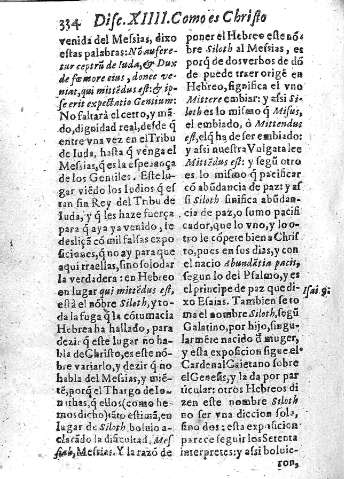 334 Disc. XIIII. Como es Christo
venida del Messias, dixo
estas palabras: Nõ aufere-
tur ceptrũ de Iuda, & Dux
de fœmore eius, donec ve-
niat, qui mittẽdus est: & ip-
se erit expectatio Gentium:
No faltarà el cetro, y mã-
do, dignidad real, desde q̃
entre vna vez en el Tribu
de Iuda, hasta q̃ venga el
Messias, q̃ es la esperança
de los Gentiles. Este lu-
gar viẽdo los Iudios q̃ es
tan sin Rey del Tribu de
Iuda, y q̃ les haze fuerça
para q̃ aya ya venido, te-
desliçã cõ mil falsas expo
siciones, q̃ no ay para que
aqui traellas, sino solo dar
la verdadera: en Hebreo
en lugar qui mittẽdus est,
està el nõbre Siloth, y to-
da la fuga q̃ la cõtumacia
Hebrea ha hallado, para
dezir q̃ este lugar no ha-
bla de Christo, es este nõ-
bre variarlo, y dezir q̃ no
habla del Messias, y miẽ-
tẽ, porq̃ el Thargo de Io-
nathas, q̃ ellos (como he-
mos dicho) tãto estimã, en
lugar de Siloth boluio a-
clarãdo la dificultad, Mes
siah, Messias. Y la razõ de
poner el Hebreo este nõ-
bre Siloth al Messias, es
porq̃ de dos verbos de dõ
de puede traer origẽ en
Hebreo, significa el vno
Mittere embiar: y assi Si-
loth es lo mismo q̃ Misus,
el embiado, ò Mittendus
est, el q̃ ha de ser embiado:
y assi nuestra Vulgata lee
Mittẽdus est: y segũ otro
es lo mismo q̃ pacificar
cõ abũdancia de paz: y as
si Siloth sinifica abũdan-
cia de paz, o sumo pacifi
cador, que lo vno, y lo o-
tro le cõpete bien a Chris
to, pues en sus dias, y con
el nacio Abundãtia pacis,
segun lo del Psalmo, y es
el principe de paz que di-
xo Esaias. Tambien se to
ma el nombre Siloth, segũ
Galatino, por hijo, singu-
larmẽte nacido d̃ muger,
y esta exposicion sigue el
Cardenal Gaietano sobre
el Genesis, y la da por pa
rticular: otros Hebreos di
zen este nombre Siloth
no ser vna diccion sola,
sino dos: esta exposicion
parece seguir los Setenta
interpretes: y assi boluie-
ron,
Isai. 9.